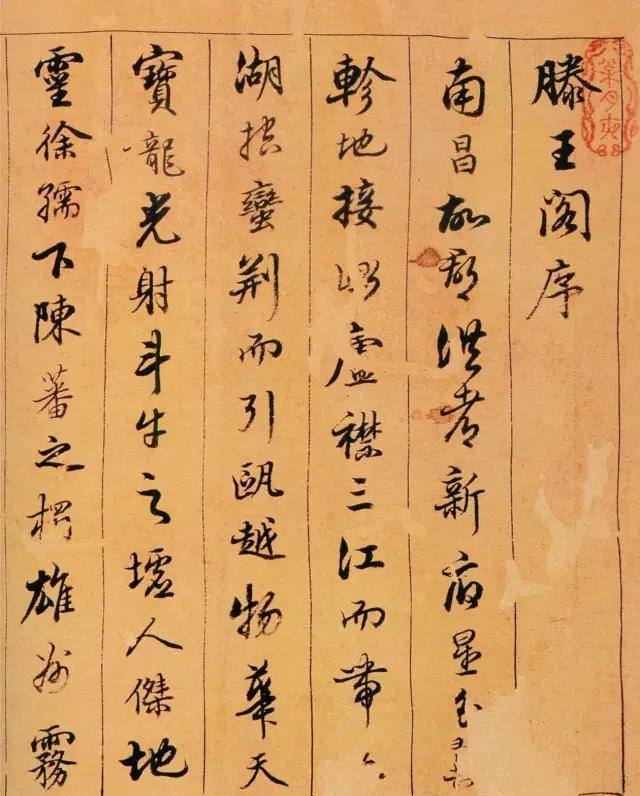 滕王閣序
南昌故郡洪都新府星分翼
軫地接衡廬襟三江而帶五
湖控蠻荊而引甌越物華天
寶龍光射斗牛之墟人傑地
靈徐孺下陳蕃之榻雄州霧